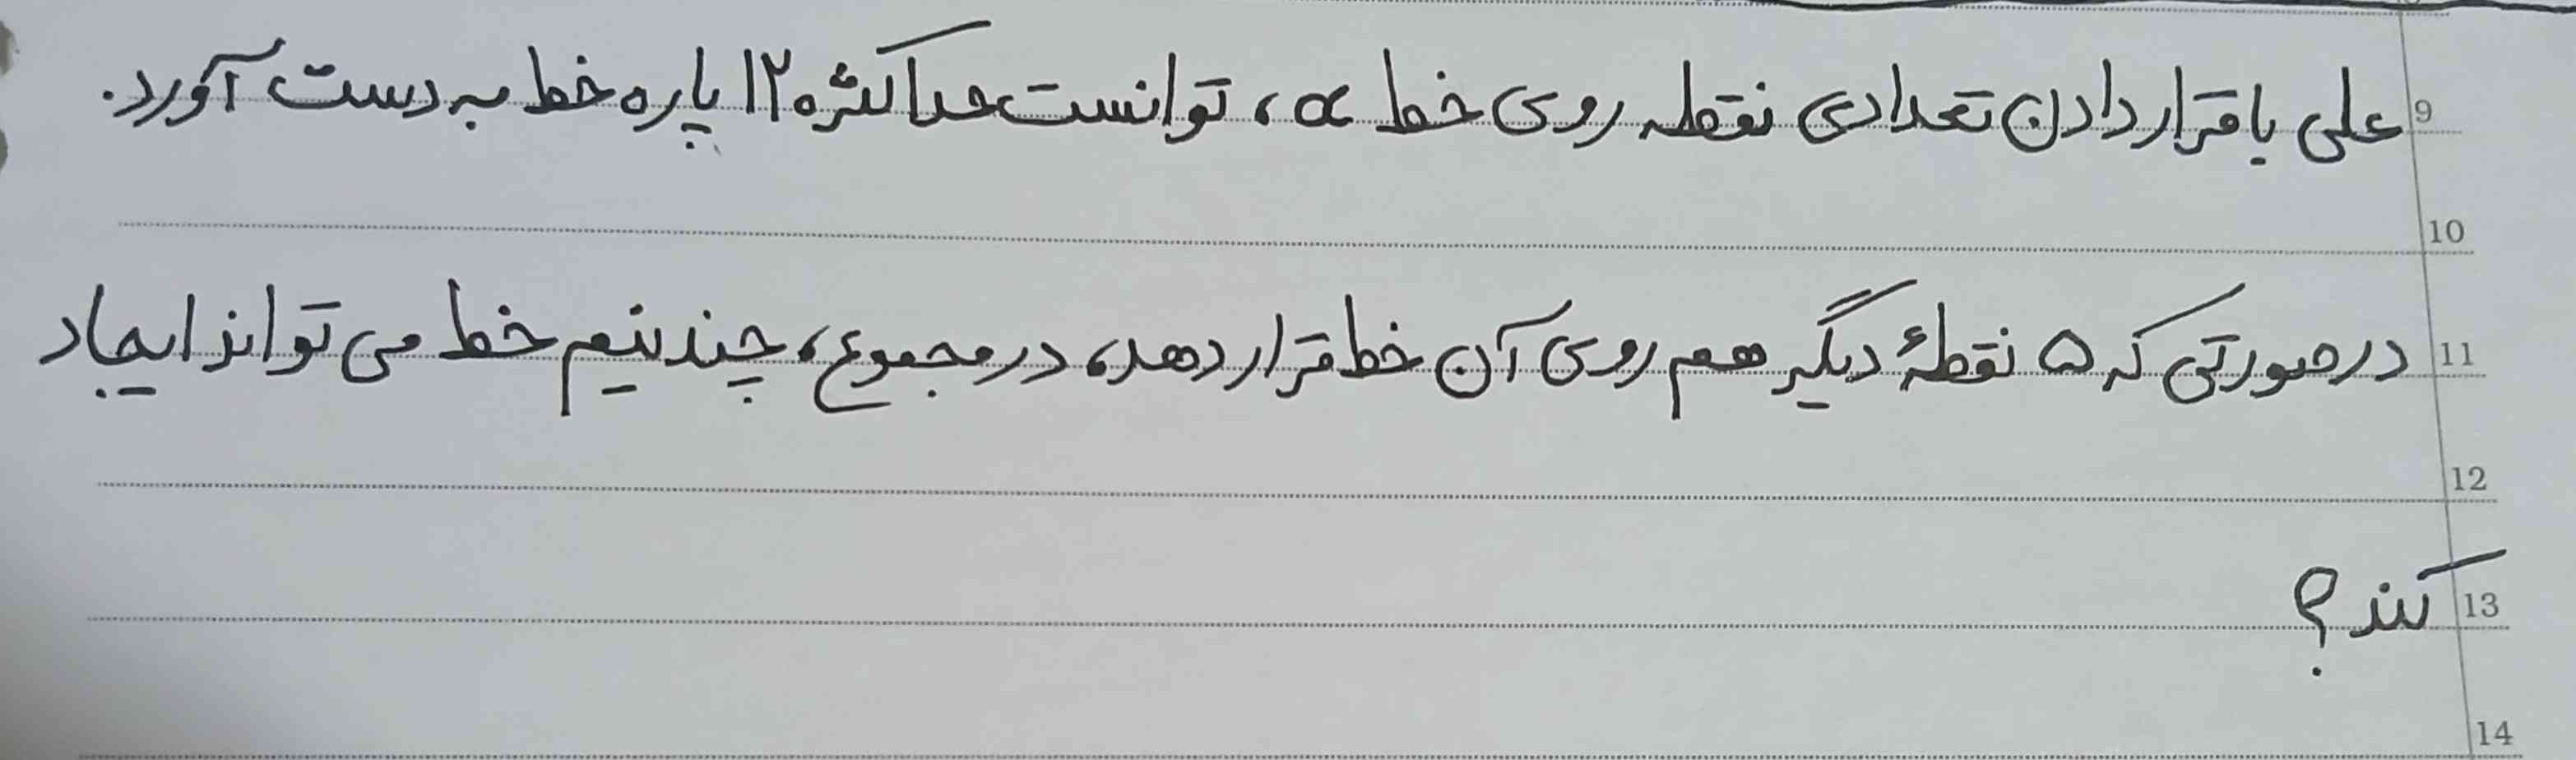 9 علی با قرار دادن تعدادی نقطه روی خط x، توانست حداکثر ۱۲۰ پاره خط به دست آورد.
10
11 در صورتی که ۵ نقطهٔ دیگر هم روی آن خط قرار دهد، در مجموع، چند نیم خط می تواند ایجاد
12
13 کند؟
14